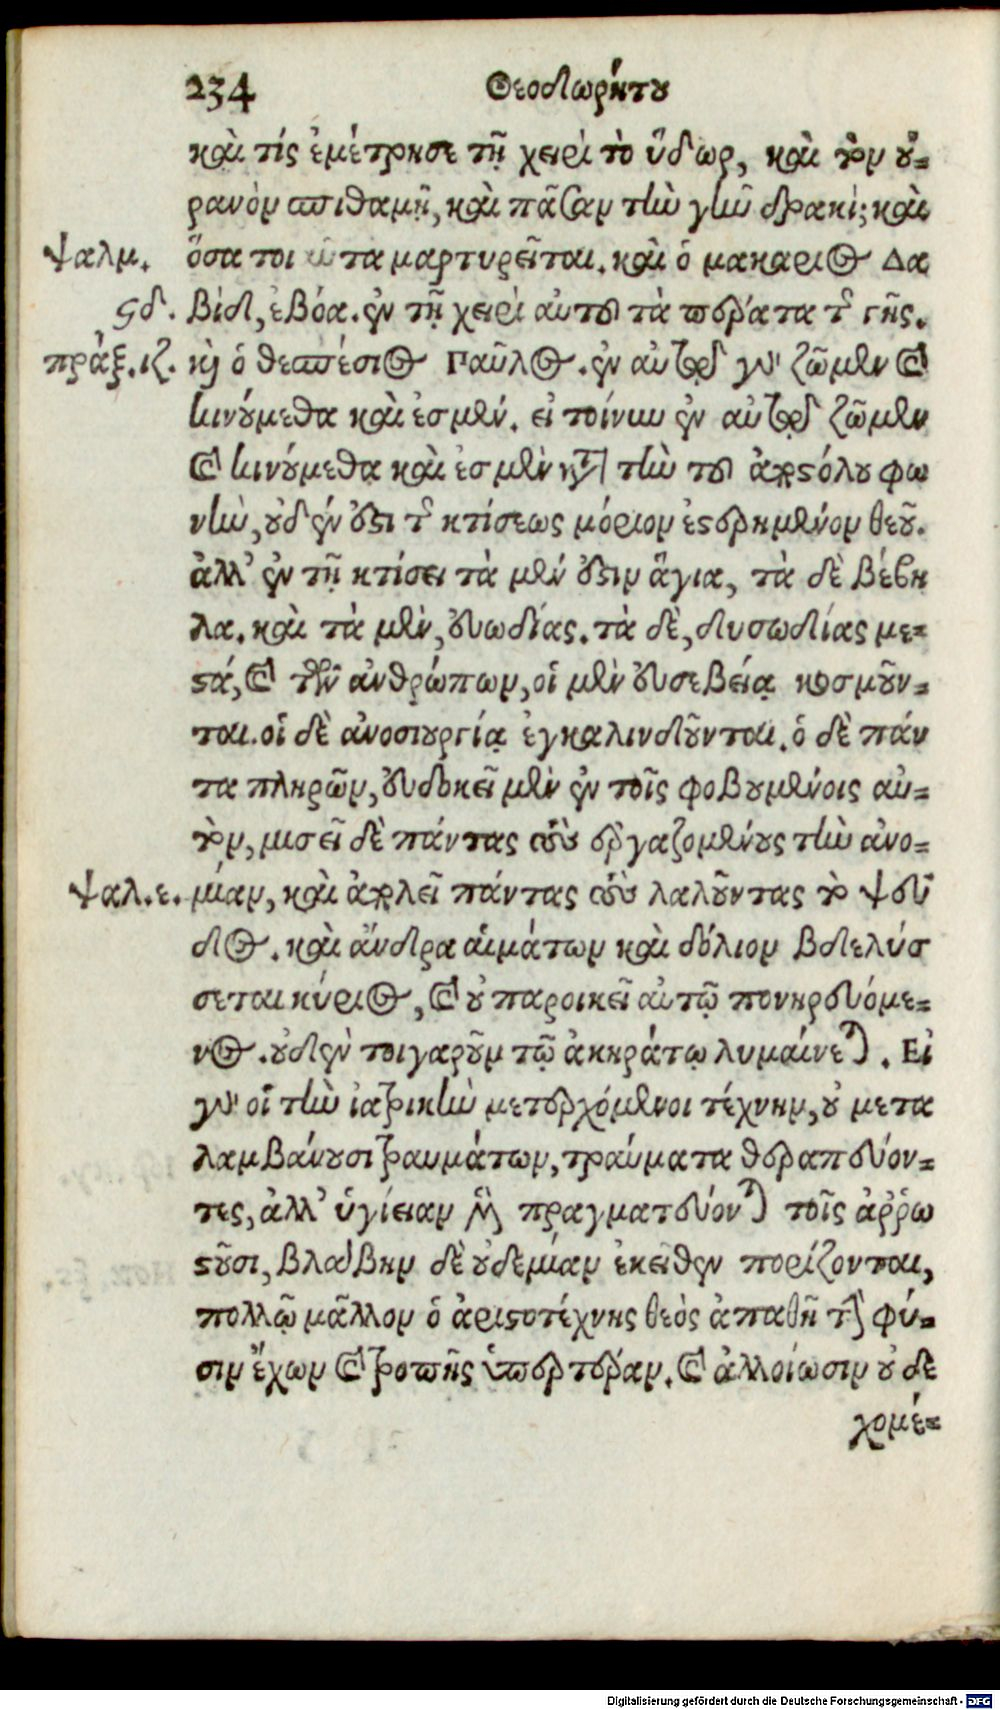 234 Θεοδωρήτου
καὶ τίς ἐμέτρησε τῇ χειρὶ τὸ ὕδωρ, καὶ τὸν οὐ-
ρανὸν σπιθαμῇ, καὶ πᾶσαν τὴν γῆν δρακί; καὶ
ψαλμ. ὅσα τοιαῦτα μαρτυρεῖται. καὶ ὁ μακάριος Δα
ϟδ. βὶδ, ἐβόα. ἐν τῇ χειρὶ αὐτοῦ τὰ πέρατα τῆς γῆς.
πράξ. ιζ. καὶ ὁ θεσπέσιος Παῦλος. ἐν αὐτῷ γὰρ ζῶμεν καὶ
κινούμεθα καὶ ἐσμέν. εἰ τοίνυν ἐν αὐτῷ ζῶμεν
καὶ κινούμεθα καὶ ἐσμὲν κατὰ τὴν τοῦ ἀποστόλου φω
νὴν, οὐδέν ἐστι τῆς κτίσεως μόριον ἐστερημένον θεοῦ.
ἀλλ' ἐν τῇ κτίσει τὰ μέν ἐστιν ἅγια, τὰ δὲ βέβη
λα. καὶ τὰ μὲν, εὐωδίας. τὰ δὲ, δυσωδίας με-
στά, καὶ τῶν ἀνθρώπων, οἱ μὲν εὐσεβείᾳ κοσμοῦν-
ται. οἱ δὲ ἀνοσιουργίᾳ ἐγκαλινδοῦνται. ὁ δὲ πάν
τα πληρῶν, εὐδοκεῖ μὲν ἐν τοῖς φοβουμένοις αὐ-
τὸν, μισεῖ δὲ πάντας τοὺς ἐργαζομένους τὴν ἀνο-
ψαλ. ε. μίαν, καὶ ἀπολεῖ πάντας τοὺς λαλοῦντας τὸ ψεῦ
δος. καὶ ἄνδρα αἱμάτων καὶ δόλιον βδελύσ
σεται κύριος, καὶ οὐ παροικεῖ αὐτῷ πονηρευόμε-
νος. οὐδὲν τοιγαροῦν τῷ ἀκηράτῳ λυμαίνεται. Εἰ
γὰρ οἱ τὴν ἰατρικὴν μετερχόμενοι τέχνην, οὐ μετα
λαμβάνουσι τραυμάτων, τραύματα θεραπεύον-
τες, ἀλλ' ὑγίειαν μὲν πραγματεύονται τοῖς ἀῤῥω
στοῦσι, βλάβην δὲ οὐδεμίαν ἐκεῖθεν πορίζονται,
πολλῷ μᾶλλον ὁ ἀριστοτέχνης θεὸς ἀπαθῆ τὴν φύ-
σιν ἔχων καὶ τροπῆς ὑπερτέραν. καὶ ἀλλοίωσιν οὐ δε
χομέ-
Digitalisierung gefördert durch die Deutsche Forschungsgemeinschaft - DFG